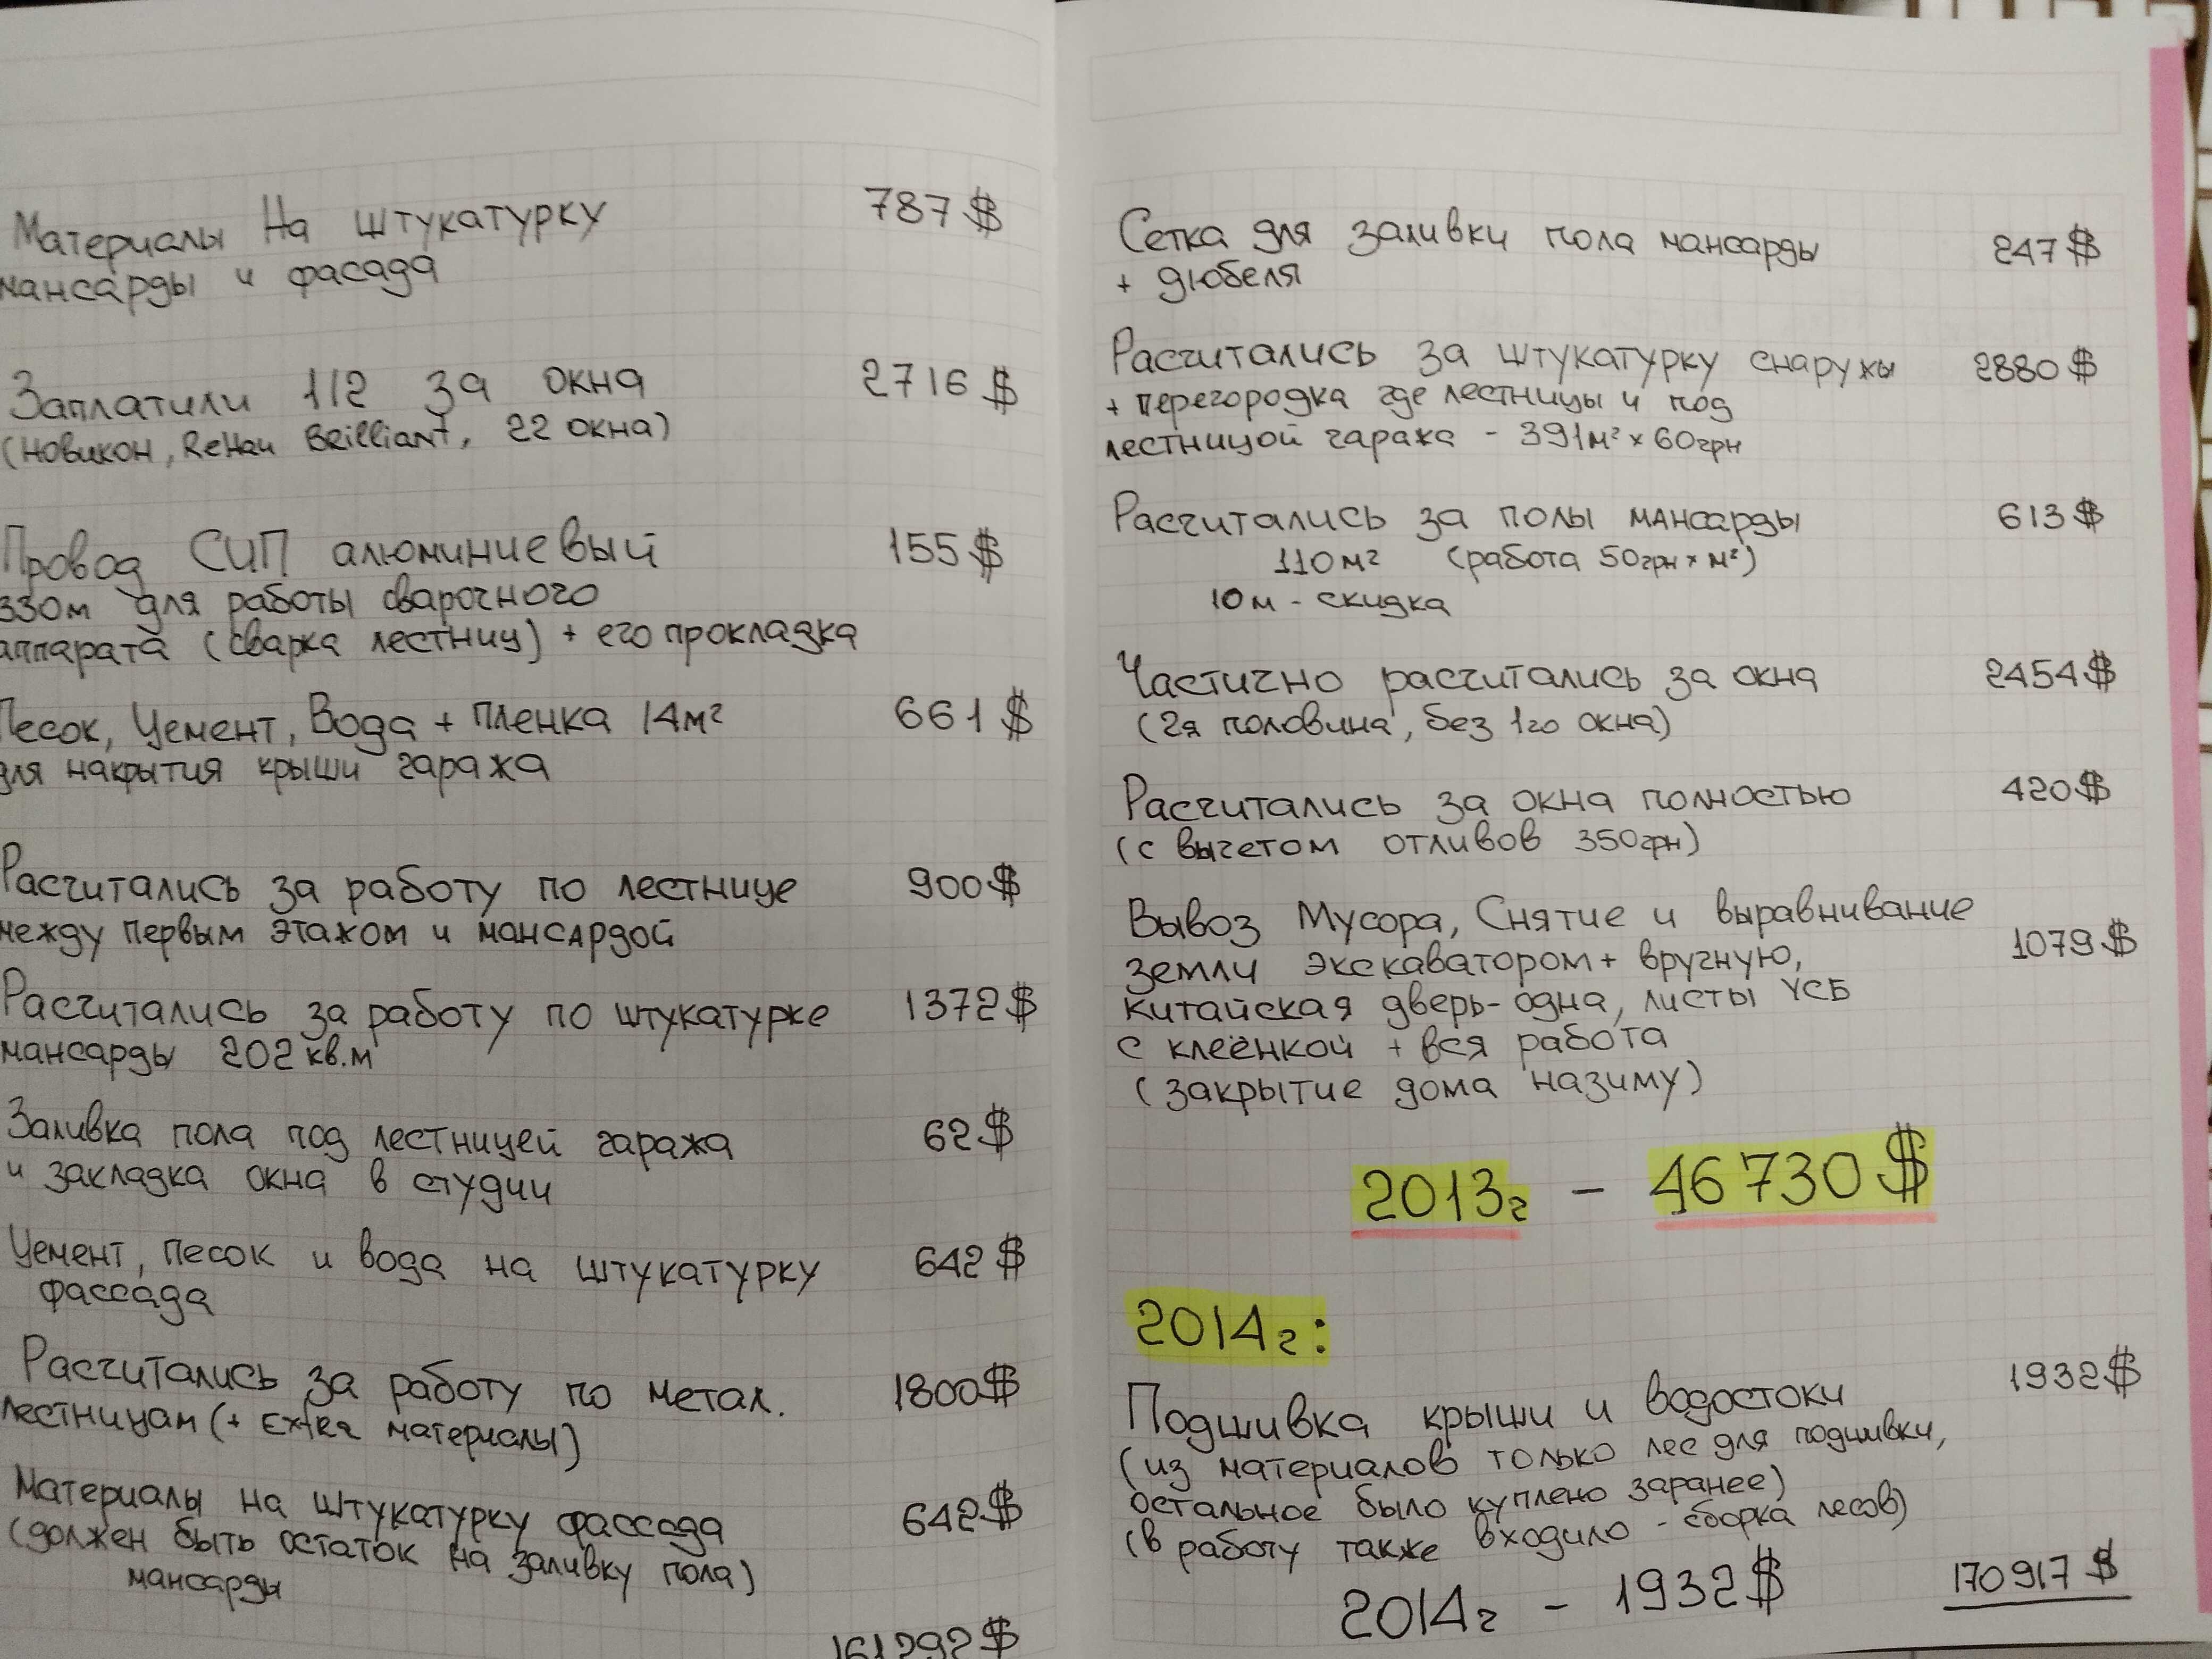 Материалы на штукатурку 787$
мансарды и фасада
Заплатили 1/2 за окна 2716$
(Новикон, Rehau Brilliant, 22 окна)
Провод СИП алюминиевый 155$
330м для работы сварочного
аппарата (сварка лестниц) + его прокладка
Песок, Цемент, Вода + пленка 14м² 661$
для накрытия крыши гаража
Расчитались за работу по лестнице 900$
между первым этажом и мансардой
Расчитались за работу по штукатурке 1372$
мансарды 202 кв.м
Заливка пола под лестницей гаража 62$
и закладка окна в студии
Цемент, песок и вода на штукатурку 642$
фассада
Расчитались за работу по метал. 1800$
лестницам (+ Extra материалы)
Материалы на штукатурку фассада 642$
(должен быть остаток на заливку пола)
мансарды
161292$
Сетка для заливки пола мансарды 247$
+ дюбеля
Расчитались за штукатурку снаружы 2880$
+ перегородка где лестницы и под
лестницой гаража - 391м² x 60грн
Расчитались за полы мансарды 613$
110м² (работа 50грн x м²)
10м - скидка
Частично расчитались за окна 2454$
(2я половина, без 1го окна)
Расчитались за окна полностью 420$
(с вычетом отливов 350грн)
Вывоз Мусора, Снятие и выравнивание
земли экскаватором + вручную, 1079$
китайская дверь-одна, листы УСБ
с клеёнкой + вся работа
(закрытие дома назиму)
2013г - 46730$
2014г:
Подшивка крыши и водостоки 1932$
(из материалов только лес для подшивки,
остальное было куплено заранее)
(в работу также входило - сборка лесов)
2014г - 1932$ 170917$